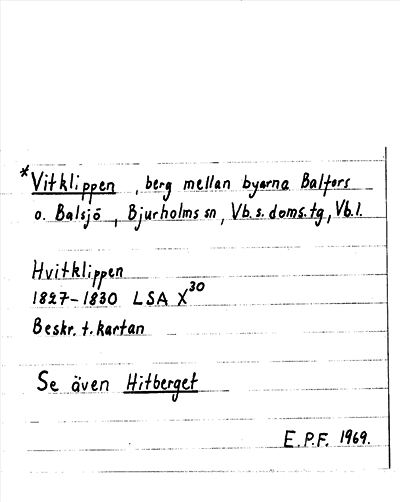 *Vitklippen, berg mellan byarna Balfors
o. Balsjö, Bjurholms sn, Vb. s. doms. tg, Vb. l.
Hvitklippen
1827-1830 LSA X30
Beskr. t. kartan
Se även Hitberget
E.P.F. 1969.